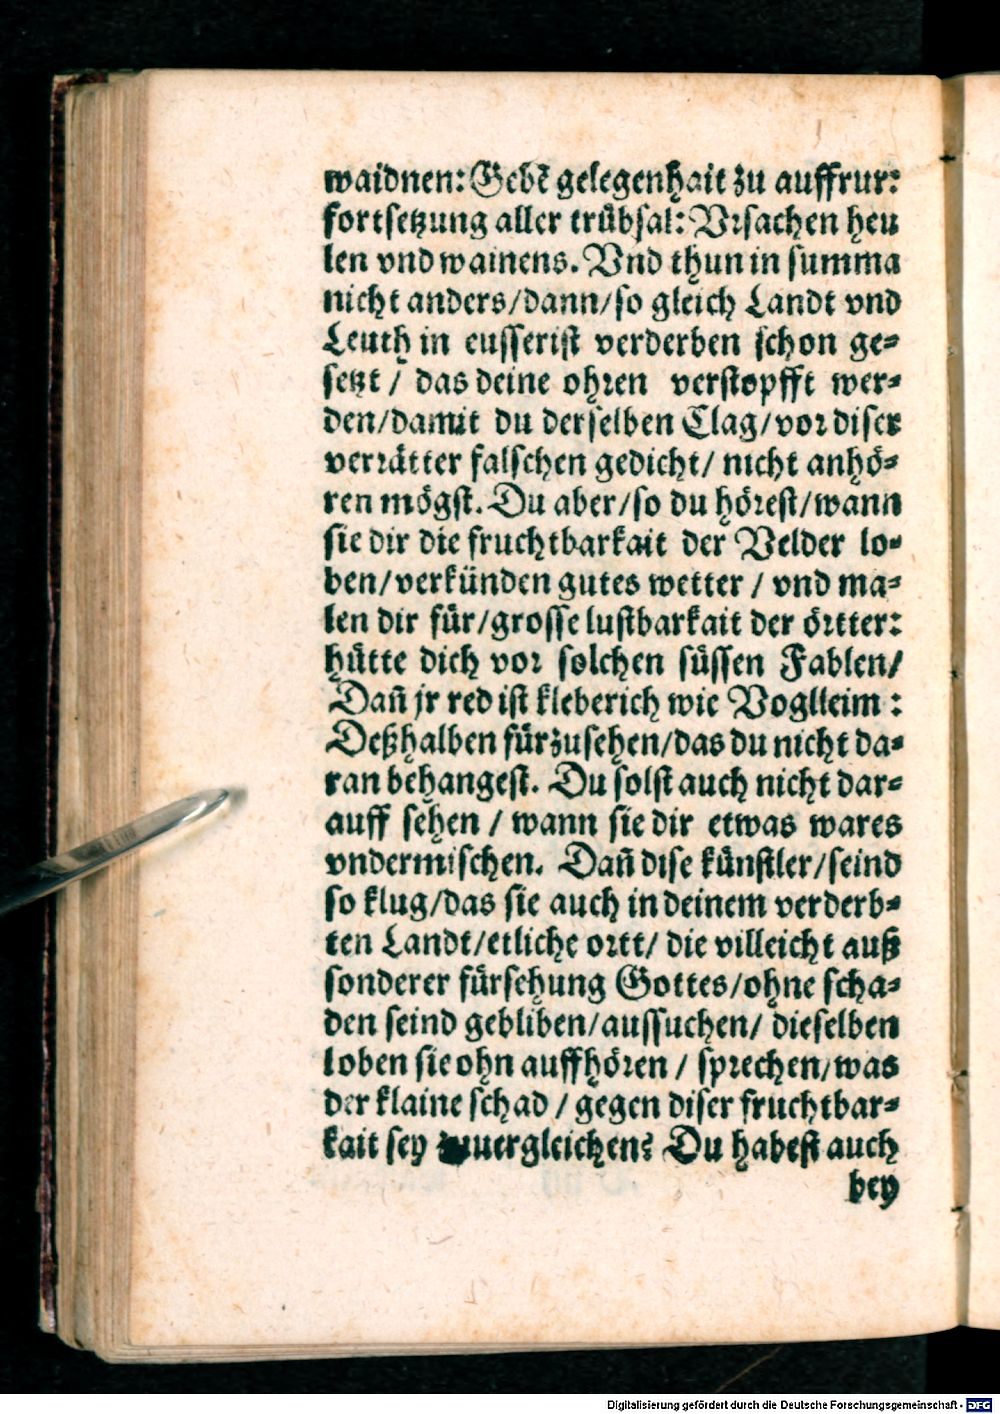 waidnen: Gebẽ gelegenhait zu auffrur:
fortsetzung aller trübsal: Vrsachen heu
len vnd wainens. Vnd thun in summa
nicht anders/dann/so gleich Landt vnd
Leuth in eusserist verderben schon ge-
setzt / das deine ohren verstopfft wer-
den/damit du derselben Clag/vor diser
verrätter falschen gedicht/ nicht anhö-
ren mögst. Du aber/so du hörest/wann
sie dir die fruchtbarkait der Velder lo-
ben/verkünden gutes wetter / vnd ma-
len dir für/grosse lustbarkait der örtter:
hütte dich vor solchen süssen Fablen/
Dañ jr red ist kleberich wie Voglleim :
Deßhalben fürzusehen/das du nicht da-
ran behangest. Du solst auch nicht dar-
auff sehen / wann sie dir etwas wares
vndermischen. Dañ dise künstler/seind
so klug/das sie auch in deinem verderb-
ten Landt/etliche ortt/ die villeicht auß
sonderer fürsehung Gottes/ohne scha-
den seind gebliben/aussuchen/ dieselben
loben sie ohn auffhören / sprechen/was
der klaine schad / gegen diser fruchtbar-
kait sey zuuergleichen? Du habest auch
bey
Digitalisierung gefördert durch die Deutsche Forschungsgemeinschaft - DFG